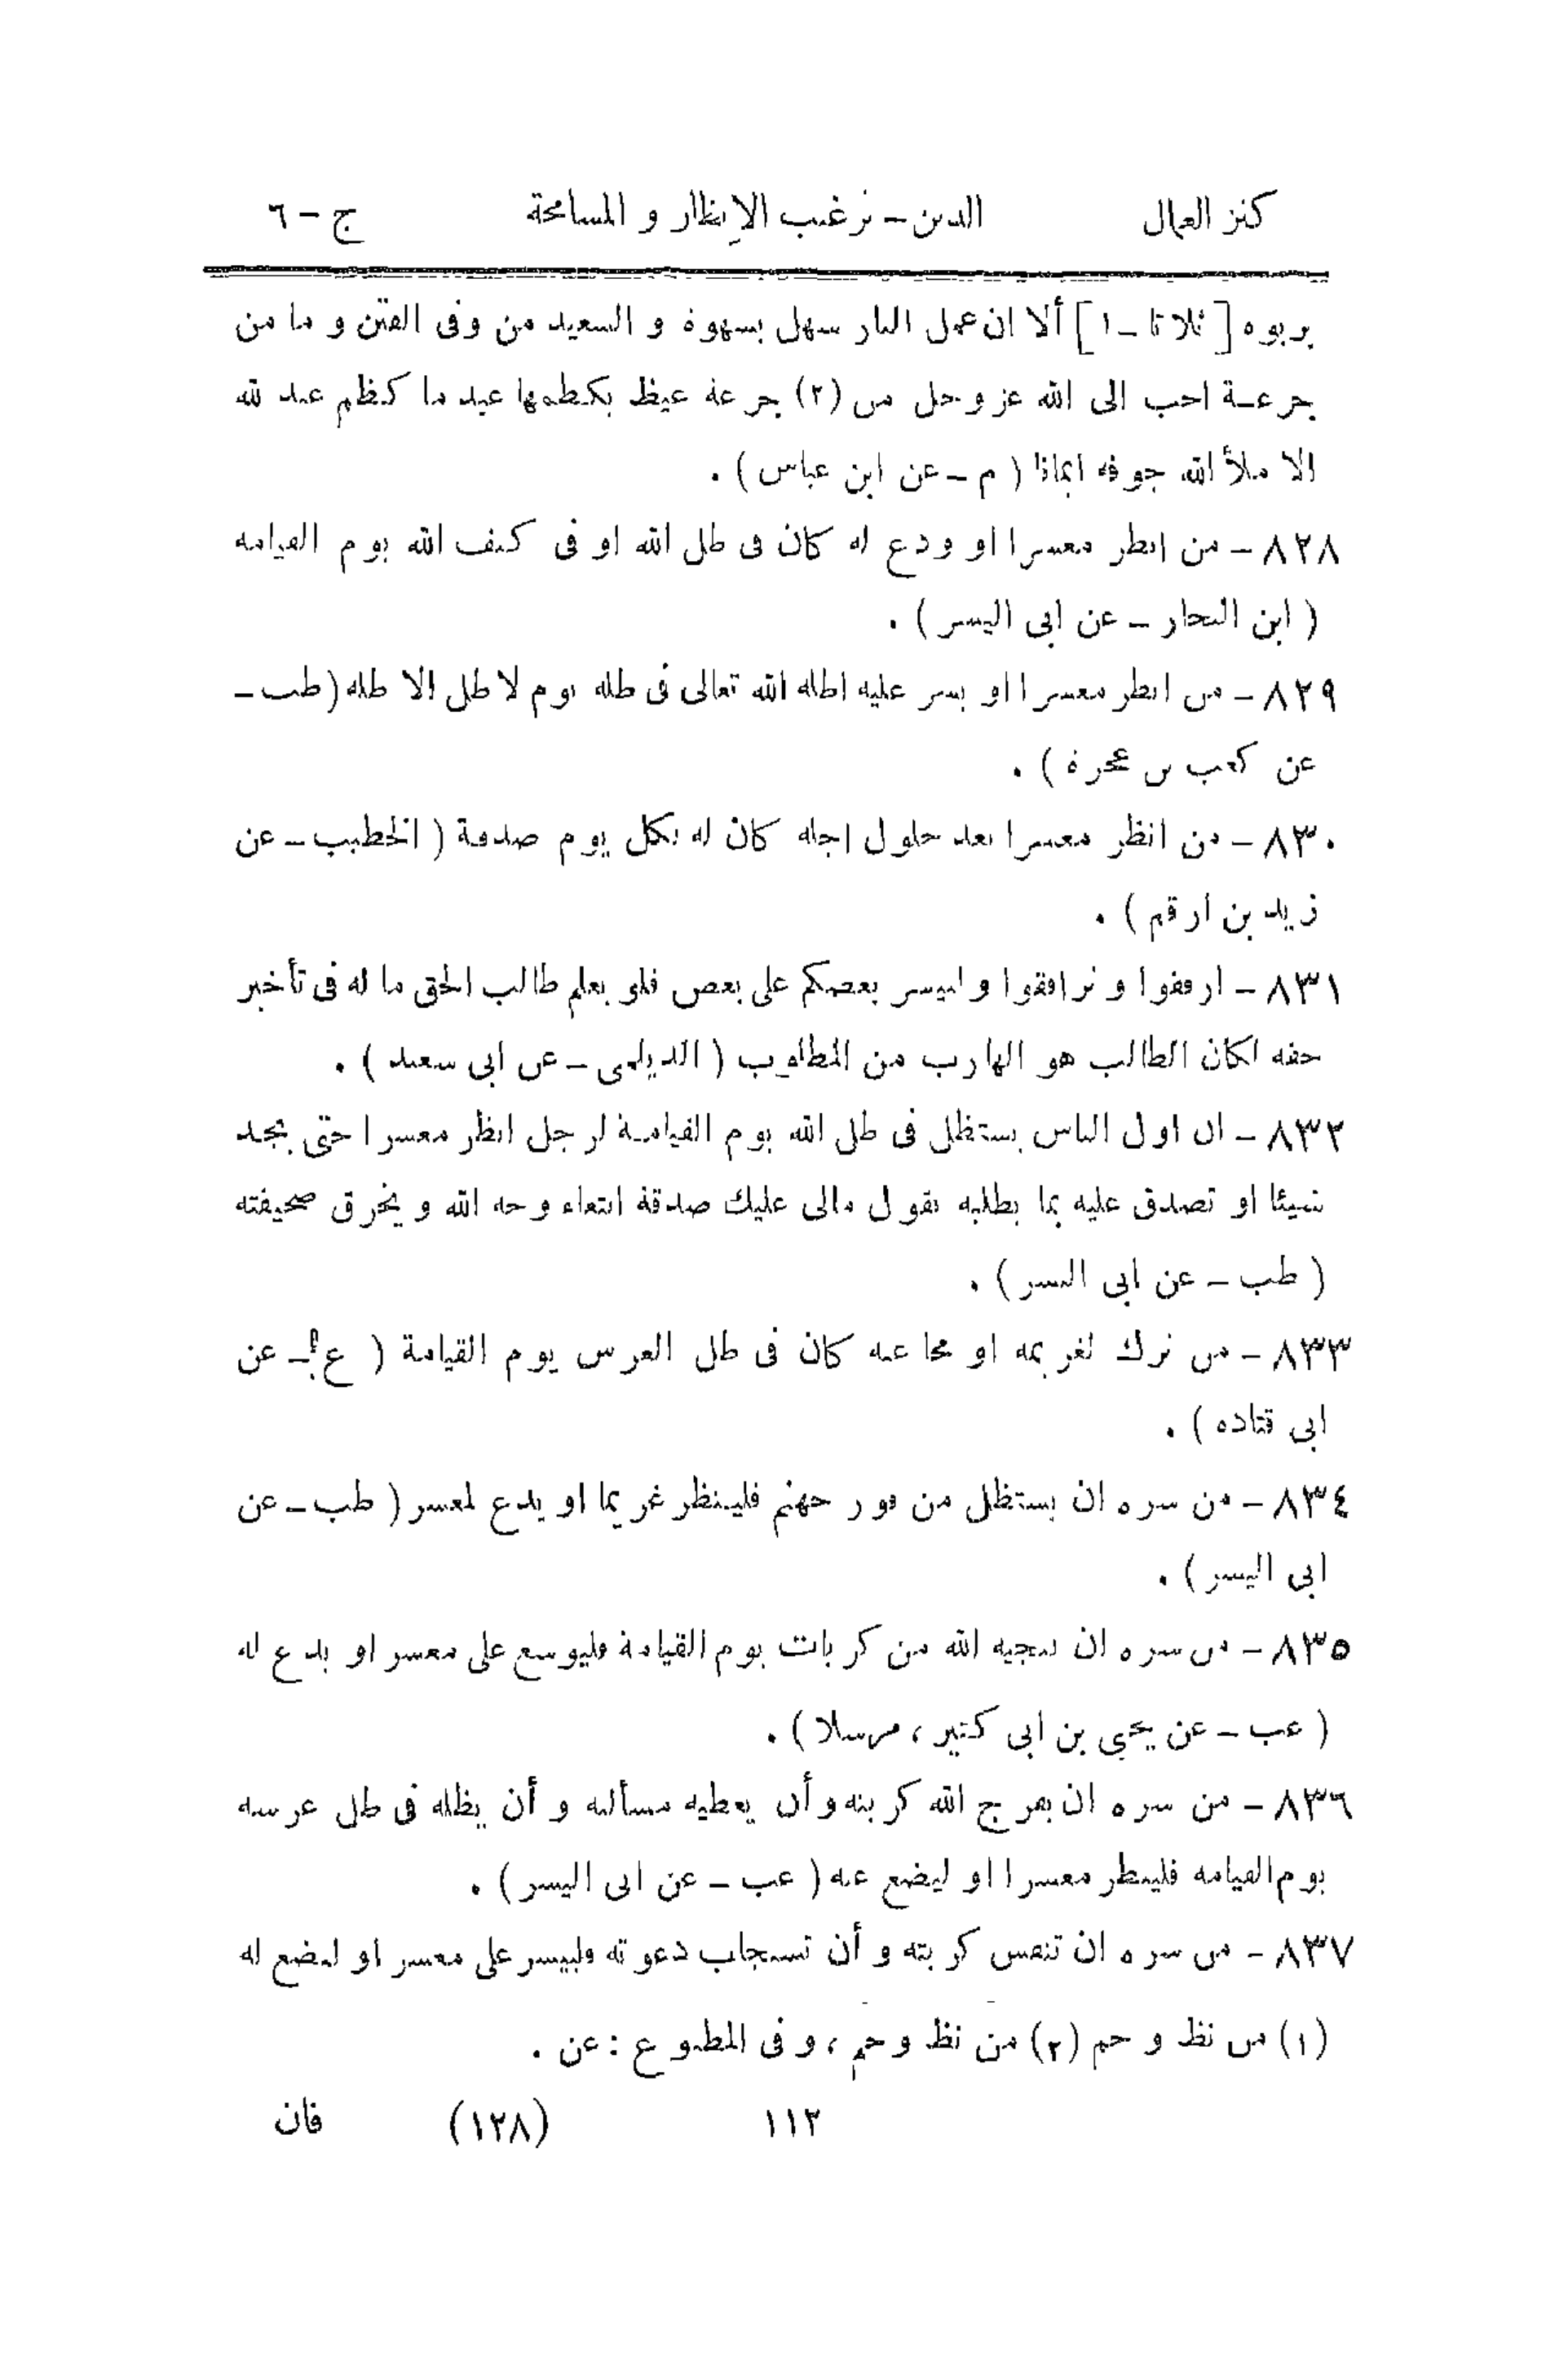 كنز العمال الدين - ترغيب الإنظار و المسامحة ج - ٦
بربوة [ ثلاثا - ١ ] ألا ان عمل النار سهل بسهوة و السعيد من وقى الفتن و ما من
جرعة احب الى الله عز وجل من (٢) جرعة غيظ يكظمها عبد ما كظم عبد لله
الا ملأ الله جوفه ايمانا ( م - عن ابن عباس ) .
٨٢٨ - من انظر معسرا او ودع له كان فى ظل الله او فى كنف الله يوم القيامه
( ابن النجار - عن ابى اليسر ) .
٨٢٩ - من انظر معسرا او يسر عليه اظله الله تعالى فى ظله يوم لا ظل الا ظله ( طب -
عن كعب بن عجرة ) .
٨٣٠ - من انظر معسرا بعد حلول اجله كان له بكل يوم صدقة ( الخطيب - عن
زيد بن ارقم ) .
٨٣١ - ارفقوا و ترافقوا و ليسر بعضكم على بعض فلو يعلم طالب الحق ما له فى تأخير
حقه لكان الطالب هو الهارب من المطلوب ( الديلمى - عن ابى سعيد ) .
٨٣٢ - ان اول الناس يستظل فى ظل الله يوم القيامة لرجل انظر معسرا حتى يجد
شيئا او تصدق عليه بما يطلبه يقول مالى عليك صدقة ابتغاء وجه الله و يخرق صحيفته
( طب - عن ابى اليسر ) .
٨٣٣ - من ترك لغريمه او محا عنه كان فى ظل العرش يوم القيامة ( ع - عن
ابى قتاده ) .
٨٣٤ - من سره ان يستظل من فور جهنم فلينظر غريما او يدع لمعسر ( طب - عن
ابى اليسر ) .
٨٣٥ - من سره ان ينجيه الله من كربات يوم القيامة فليوسع على معسر او يدع له
( عب - عن يحيى بن ابى كثير ، مرسلا ) .
٨٣٦ - من سره ان يفرج الله كربته و أن يعطيه مسألته و أن يظله فى ظل عرشه
يوم القيامه فلينظر معسرا او ليضع عنه ( عب - عن ابى اليسر ) .
٨٣٧ - من سره ان تنفس كربته و أن تستجاب دعوته فلييسر على معسر او ليضع له
(١) من نظ و حم (٢) من نظ و حم ، و فى المطبوع : عن .
١١٢ (١٢٨) فان